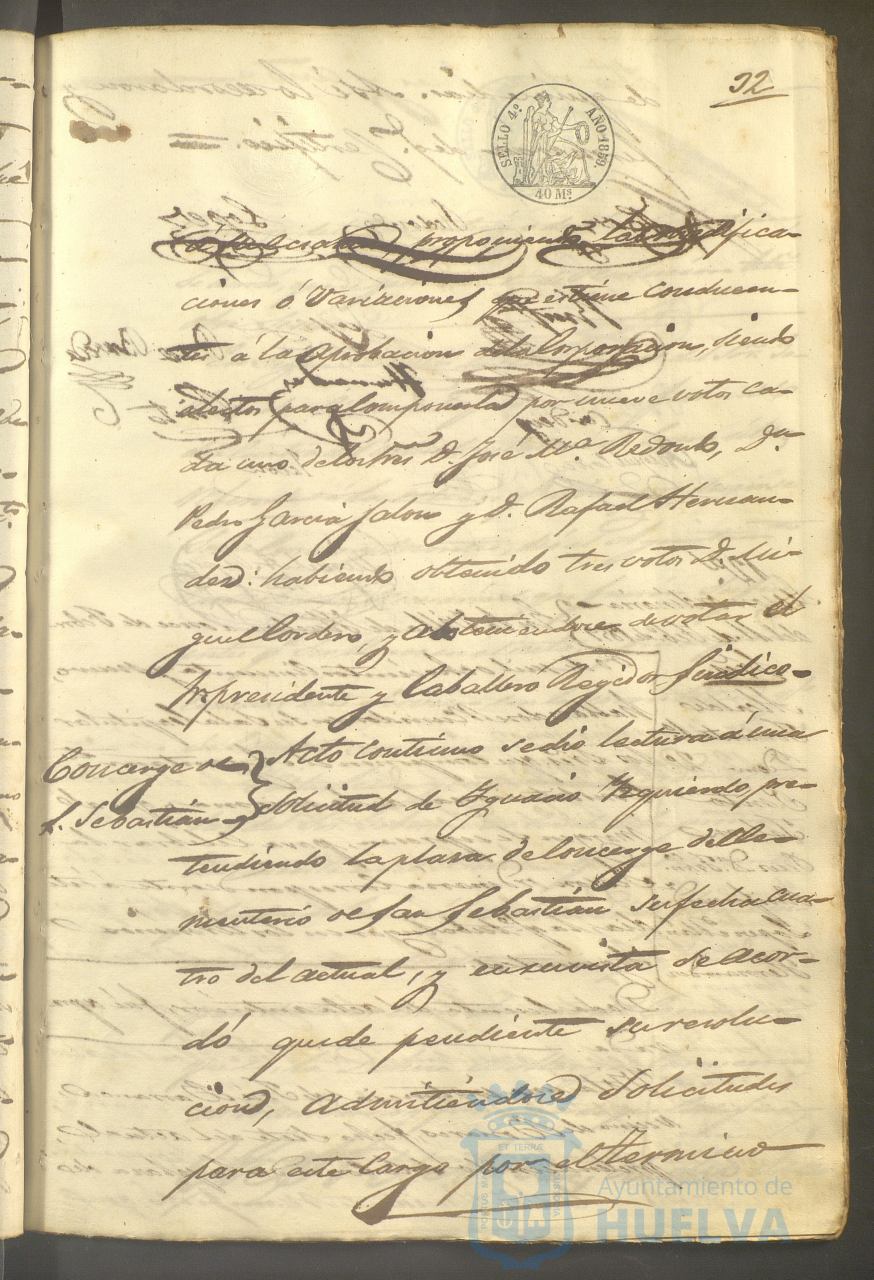 32
SELLO 4º. AÑO 1859.
40 Ms.
proponiendo las modifica-
ciones ó variaciones que estime conducen-
tes á la aprobacion dela Corporacion, siendo
electos para componerla por nueve votos ca-
da uno delos Sres. D. José Mª. Redondo, Dn.
Pedro Garcia Jalon y D. Rafael Hernan-
dez: habiendo obtenido tres votos D. Mi-
guel Cordero, y absteniendose de votar el
Sr. presidente y Caballero Regidor Sindico-
Concerge de
S. Sebastián
Acto continuo se dió lectura á una
solicitud de Ygnacio Yzquierdo, pre-
tendiendo la plaza de Concerge del Ce-
menterio de San Sebastián su fecha cua-
tro del actual, y en su vista se acor-
dó quede pendiente su resolu-
cion, admitiéndose solicitudes
para este cargo por el termino
ET TERRAE
Ayuntamiento de
HUELVA